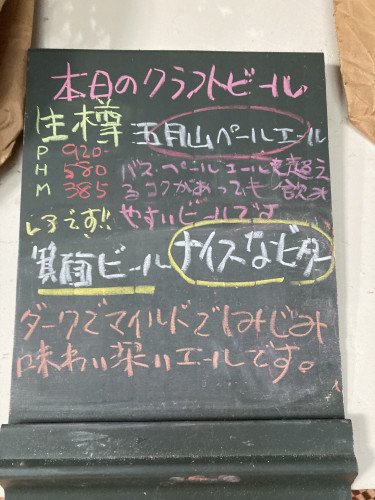 本日のクラフトビール
生樽 五月山ペールエール
P 920-
H 580
M 385
バス・ペールエールを超え
るコクがあっても飲み
やすいビールです
です!!
箕面ビール ナイスなビター
ダークでマイルドでしみじみ
味わい深いエールです。